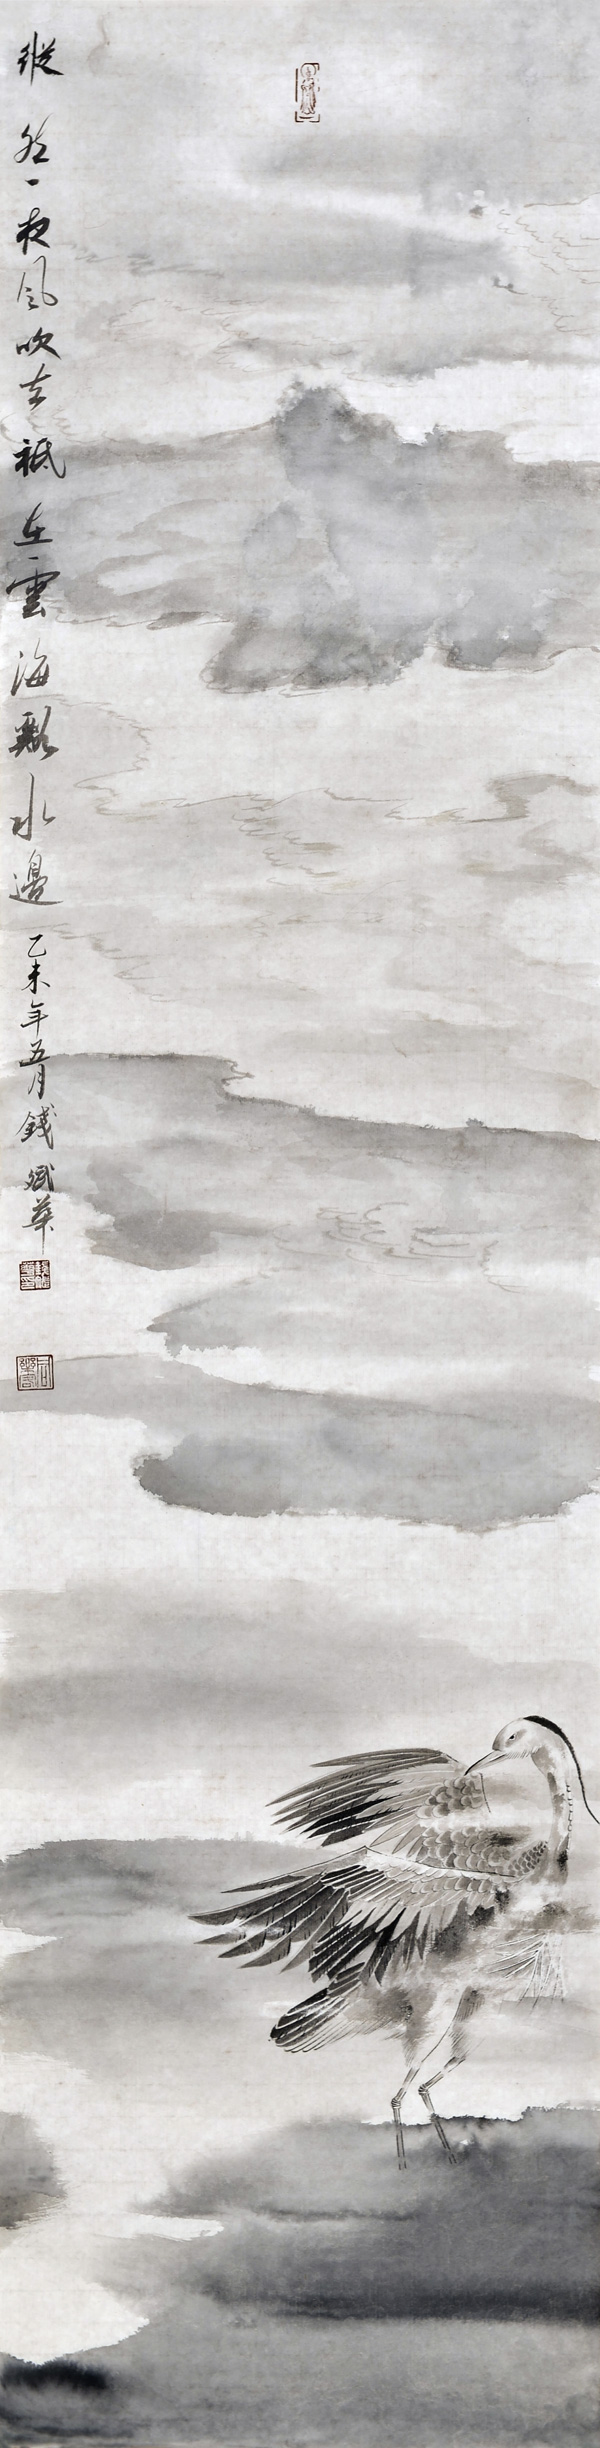 縱然一夜風吹去祗在雲海㶉水邊
乙未年五月錢斌華